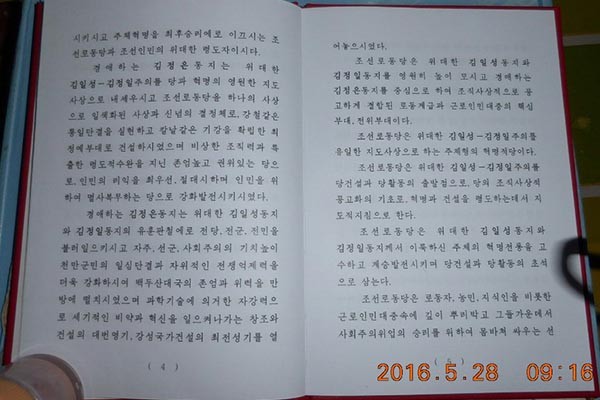 시키시고 주체혁명을 최후승리에로 이끄시는 조
선로동당과 조선인민의 위대한 령도자이시다.
경애하는 김정은동지는 위대한
김일성-김정일주의를 당과 혁명의 영원한 지도
사상으로 내세우시고 조선로동당을 하나의 사상
으로 일색화된 사상과 신념의 결정체로, 강철같은
통일단결을 실현하고 칼날같은 기강을 확립한 최
정예부대로 건설하시였으며 비상한 조직력과 특
출한 령도적수완을 지닌 존엄높고 권위있는 당으
로, 인민의 리익을 최우선, 절대시하며 인민을 위
하여 멸사복무하는 당으로 강화발전시키시였다.
경애하는 김정은동지는 위대한 김일성동지
와 김정일동지의 유훈관철에로 전당, 전군, 전민을
불러일으키시고 자주, 선군, 사회주의의 기치높이
천만군민의 일심단결과 자위적인 전쟁억제력을
더욱 강화하시여 백두산대국의 존엄과 위력을 만
방에 떨치시였으며 과학기술에 의거한 자강력으
로 세기적인 비약과 혁신을 일으켜나가는 창조와
건설의 대번영기, 강성국가건설의 최전성기를 열
( 4 )
어놓으시였다.
조선로동당은 위대한 김일성동지와
김정일동지를 영원히 높이 모시고 경애하는
김정은동지를 중심으로 하여 조직사상적으로 공
고하게 결합된 로동계급과 근로인민대중의 핵심
부대, 전위부대이다.
조선로동당은 위대한 김일성-김정일주의를
유일한 지도사상으로 하는 주체형의 혁명적당이다.
조선로동당은 위대한 김일성-김정일주의를
당건설과 당활동의 출발점으로, 당의 조직사상적
공고화의 기초로, 혁명과 건설을 령도하는데서 지
도적지침으로 한다.
조선로동당은 위대한 김일성동지와
김정일동지께서 이룩하신 주체의 혁명전통을 고
수하고 계승발전시키며 당건설과 당활동의 초석
으로 삼는다.
조선로동당은 로동자, 농민, 지식인을 비롯한
근로인민대중속에 깊이 뿌리박고 그들가운데서
사회주의위업의 승리를 위하여 몸바쳐 싸우는 선
( 5 )
2016.5.28 09:16